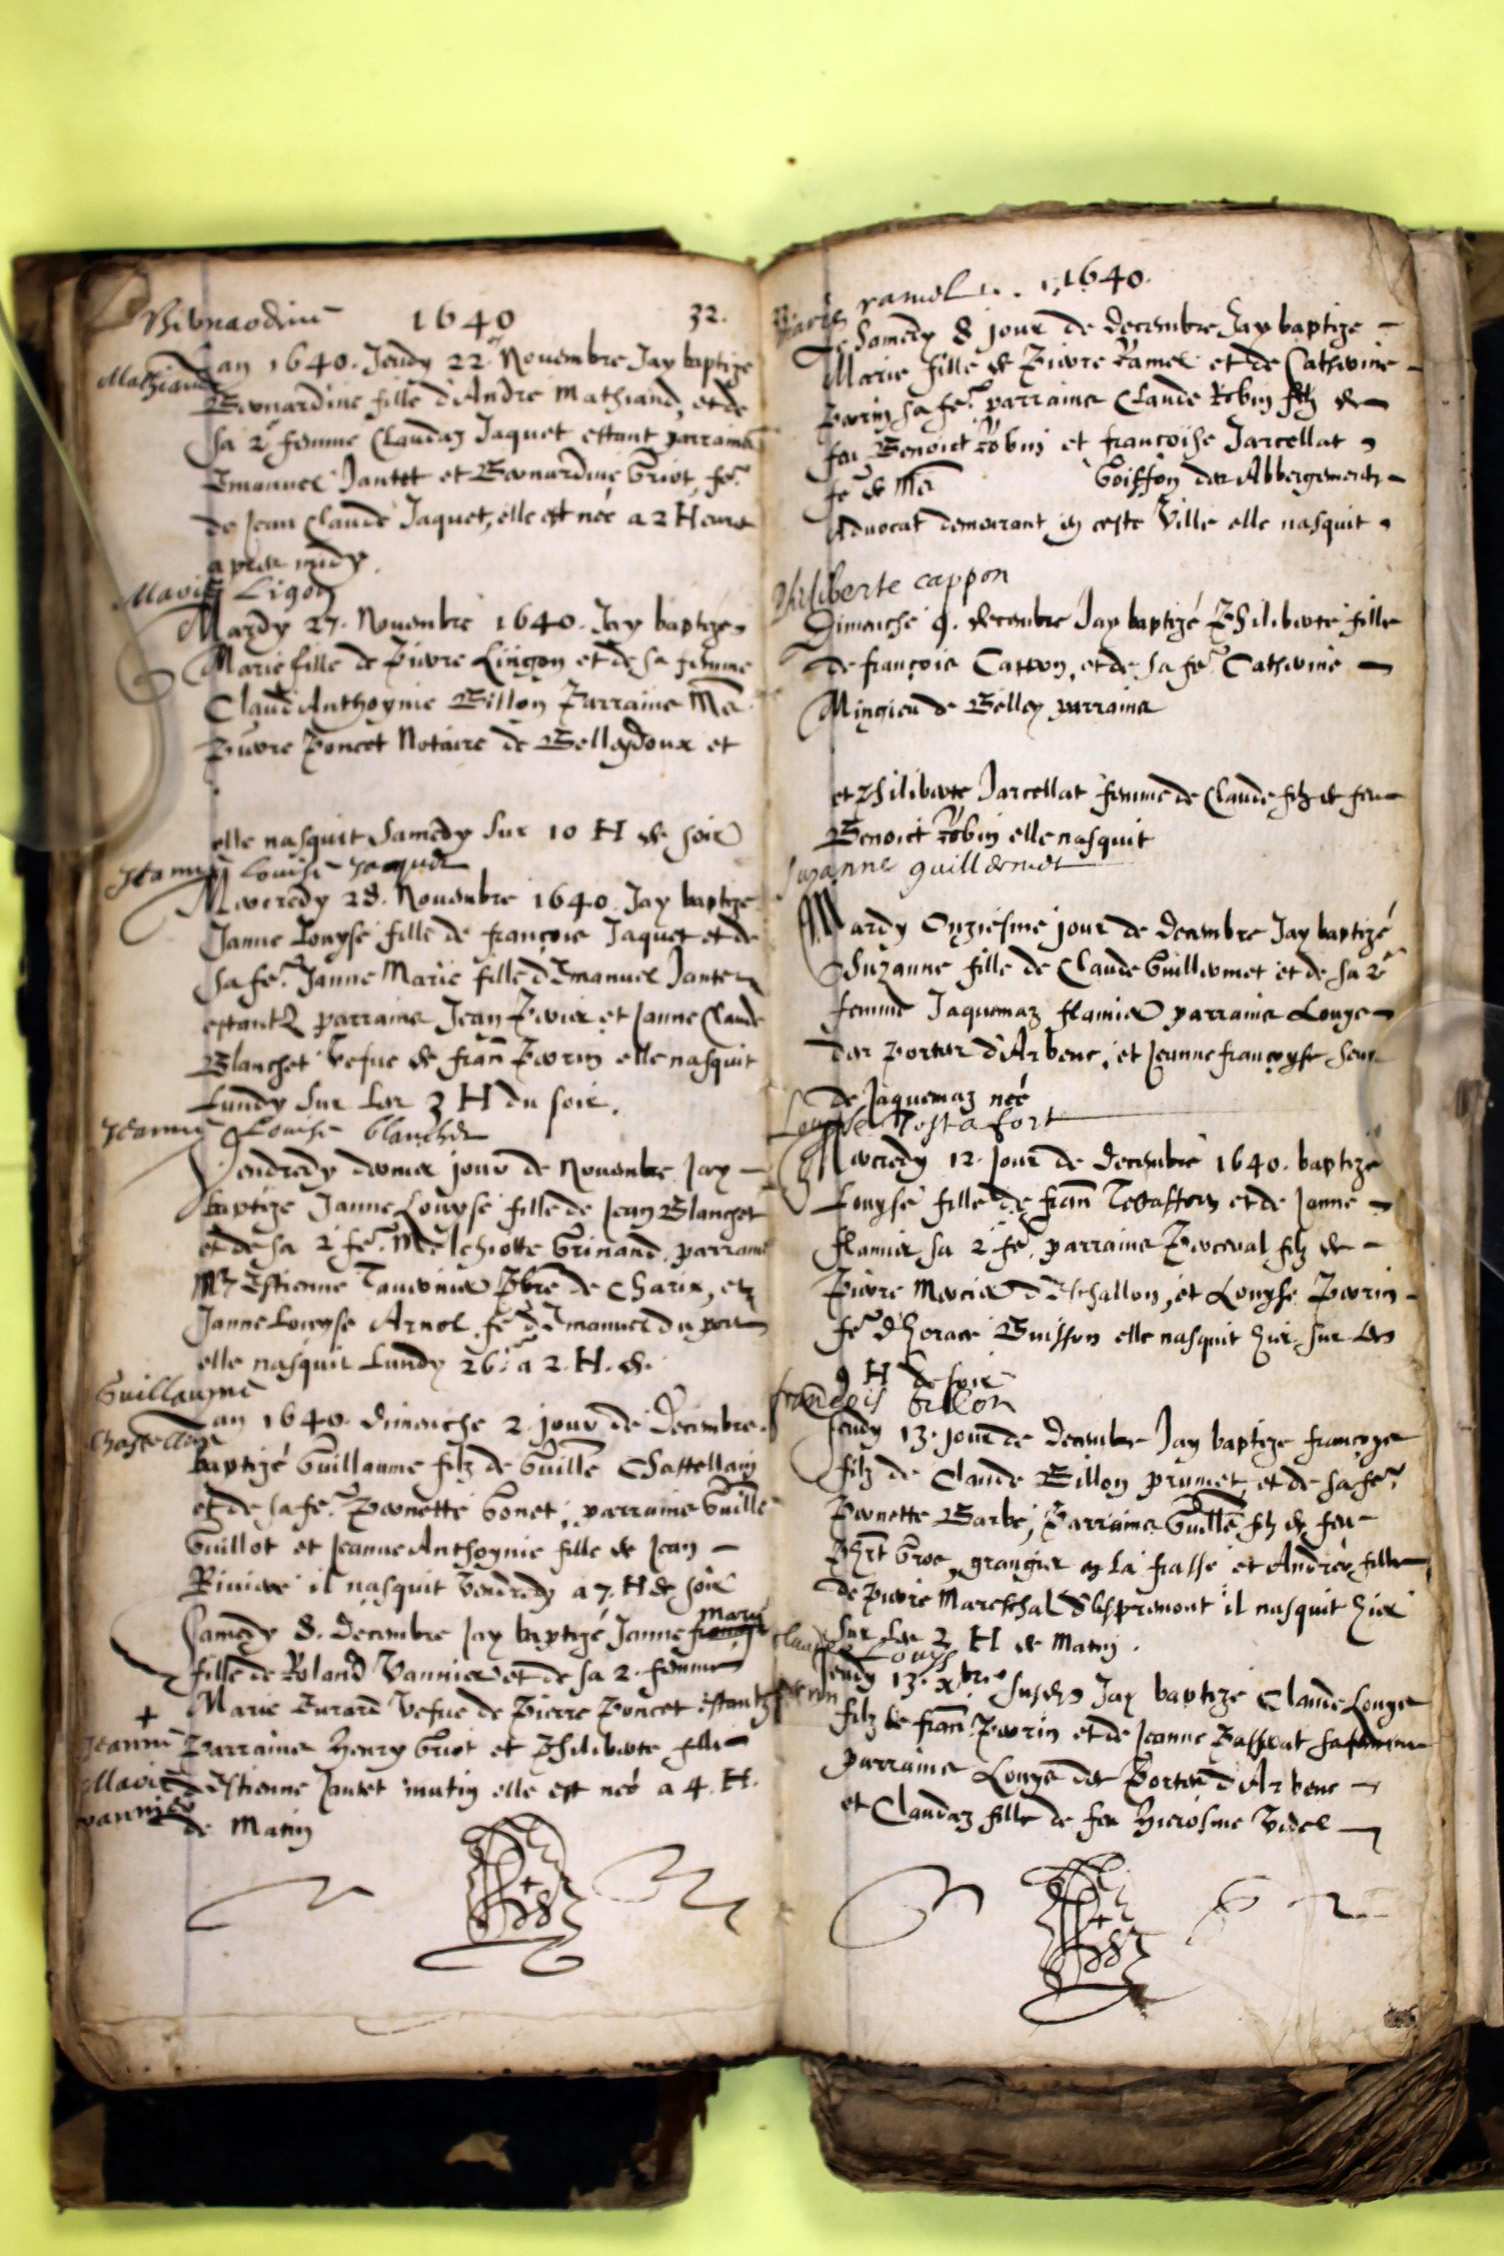 Bernardine 1640 32.
Mathiand
Lan 1640. Jeudy 22e Novembre Jay baptize
Bernardine fille d'Andre Mathiand, et de
sa 2e femme Claudaz Jaquet estant parrains
Emanuel Jantet et Bernardine Griot, fe.
de Jean Claude Jaquet, elle est née a 2 Heures
apres midy.
Marie Ligon
Mardy 27. Novembre 1640. Jay baptize
Marie fille de Pierre Lingon et de sa femme
Claude Anthoynie Billon Parrains Me
Pierre Poncet Notaire de Belleydoux et
elle nasquit Samedy sur 10 H de soir
Jeanne Louise Jaquet
Mercredy 28. Novembre 1640. Jay baptize
Janne Louyse fille de françois Jaquet et de
sa fe. Janne Marie fille d'Emanuel Jantet
estantz parrains Jean Perier et Janne Claude
Blanchet vefue de fran Perrin elle nasquit
Lundy sur les 3 H du soir.
Jeanne Louise blanchet
Vendredy dernier jour de Novembre Jay
baptize Janne Louyse fille de Jean Blanchet
et de sa 2 fe. Melchiotte Grinand. parrains
Mre Estienne Tauernier Pbre de Charix, et
Janne Louyse Arnol fe d'Emanuel du port
elle nasquit Lundy 26. a 2. H. de.
Guillaume
Chastellain
Lan 1640. dimanche 2. jour de Decembre.
baptizé Guillaume filz de Guille Chastellain
et de sa fe. Pernette Gonet, parrains Guille
Guillot et Jeanne Anthoynie fille de Jean
Riviere il nasquit Vendredy a 7. H de soir
Samedy 8. Decembre Jay baptizé Janne françoise Marie
fille de Roland Vannier et de sa 2. femme
Marie Burard vefue de Pierre Poncet estantz
+
Jeanne
Marie
vannier
Parrains Henry Griot et Philiberte fille
d'Estienne Jantet mutin elle est née a 4. H.
de Matin
Marie ramel 1640.
Le Samedy 8 jour de decembre Jay baptize
Marie fille de Pierre ramel et de Catherine
Perrin sa fe. parrains Claude Robin filz de
feu Benoict robin et françoise Jarcellat
fe de Me Goiffon des Abbergements
Advocat demeurant en ceste Ville elle nasquit
Philiberte cappon
Dimanche 9. decembre Jay baptizé Philiberte fille
de françois Cappon, et de sa fe. Catherine
Mingieu de Belley parrains
et Philiberte Jarcellat femme de Claude filz de feu
Benoict robin elle nasquit
Suzanne guillermet
Mardy Onziesme jour de decembre Jay baptizé
Suzanne fille de Claude Guillermet et de sa 2e
femme Jaquemaz flamier parrains Louys
des portes d'Arbenc, et Jeanne françoyse seur
de Jaquemaz née
Louyse
Mercredy 12. jour de decembre 1640. baptizé
Louyse fille de fran et de Janne
flamier sa 2 fe. parrains Perceval filz de
Pierre Mercier d'Eschallon, et Louyse Perrin
fe d'horace Buisson elle nasquit hier sur les
9 H de soir
françois billon
Jeudy 13. jour de decembre Jay baptize françoys
filz de Claude Billon prumet, et de sa fe.
Pernette Barbe, Parrains Guille filz de feu
Gros grangier en la frasse et Andrée fille
de Pierre Mareschal d'Aspremont il nasquit hier
sur les 3 H de Matin.
Claude Louys perrin
Jeudy 13. Xbre susdit Jay baptize Claude Louys
filz de fran Perrin et de Jeanne Passerat sa femme
parrains Louys des Portes d'Arbenc
et Claudaz fille de feu Hierosme Vidal